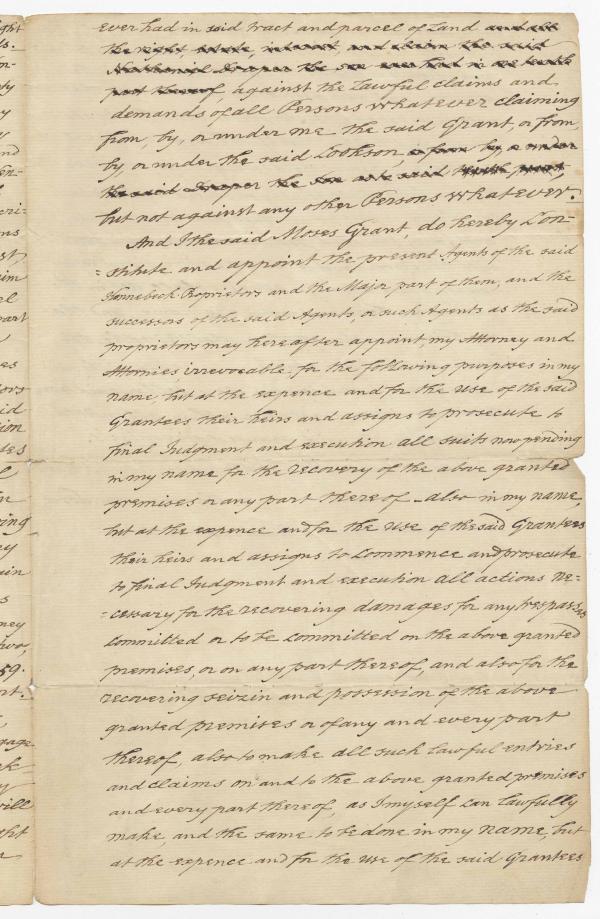 ever had in said tract and parcel of Land and all
the right, estate, interest, and claim the said
Nathaniel Draper the
part thereof, against the Lawful claims and
demands of all Persons whatever claiming
from, by, or under me the said Grant, or from,
by, or under the said Cookson, or from by or under
the said Draper the
but not against any other Persons whatever.
And I the said Moses Grant, do hereby Con-
=stitute and appoint the present Agents of the said
Kennebeck Proprietors and the Major part of them, and the
successors of the said Agents, or such Agents as the said
proprietors may hereafter appoint, my Attorney and
Attornies irrevocable, for the following purposes in my
name, but at the expence and for the Use of the said
Grantees their heirs and assigns to prosecute to
final Judgment and execution all suits now pending
in my name for the recovery of the above granted
premises or any part thereof also in my name,
but at the expence and for the Use of the said Grantees
their heirs and assigns to Commence and prosecute
to final Judgment and execution all actions Ne=
=cessary for the recovering damages for any trespasses
Committed or to be Committed on the above granted
premises, or on any part thereof, and also for the
recovering seizin and possession of the above
granted premises or of any and every part
thereof, also to make all such Lawful entries
and claims on and to the above granted premises
and every part thereof, as I myself can lawfully
make, and the same to be done in my name, but
at the expence and for the use of the said Grantees